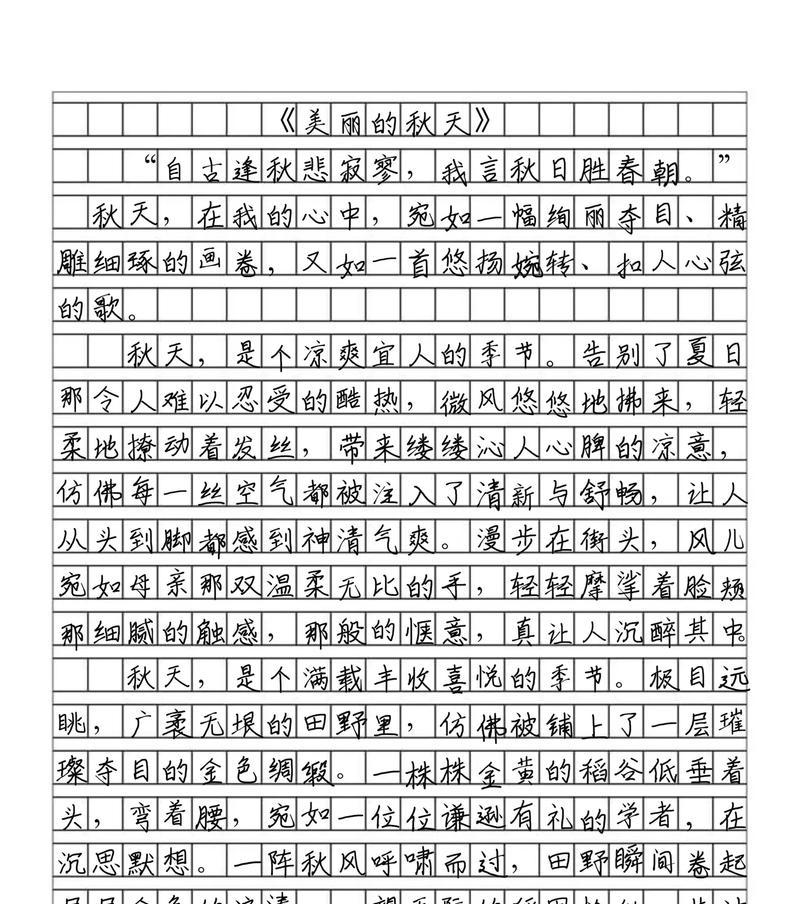 《美丽的秋天》
“自古逢秋悲寂寥，我言秋日胜春朝。”
秋天，在我的心中，宛如一幅绚丽夺目、精
雕细琢的画卷，又如一首悠扬婉转、扣人心弦
的歌。
秋天，是个凉爽宜人的季节。告别了夏日
那令人难以忍受的酷热，微风悠悠地拂来，轻
柔地撩动着发丝，带来缕缕沁人心脾的凉意，
仿佛每一丝空气都被注入了清新与舒畅，让人
从头到脚都感到神清气爽。漫步在街头，风儿
宛如母亲那双温柔无比的手，轻轻摩挲着脸颊
那细腻的触感，那般的惬意，真让人沉醉其中。
秋天，是个满载丰收喜悦的季节。极目远
眺，广袤无垠的田野里，仿佛被铺上了一层璀
璨夺目的金色绸缎。一株株金黄的稻谷低垂着
头，弯着腰，宛如一位位谦逊有礼的学者，在
沉思默想。一阵秋风呼啸而过，田野瞬间卷起